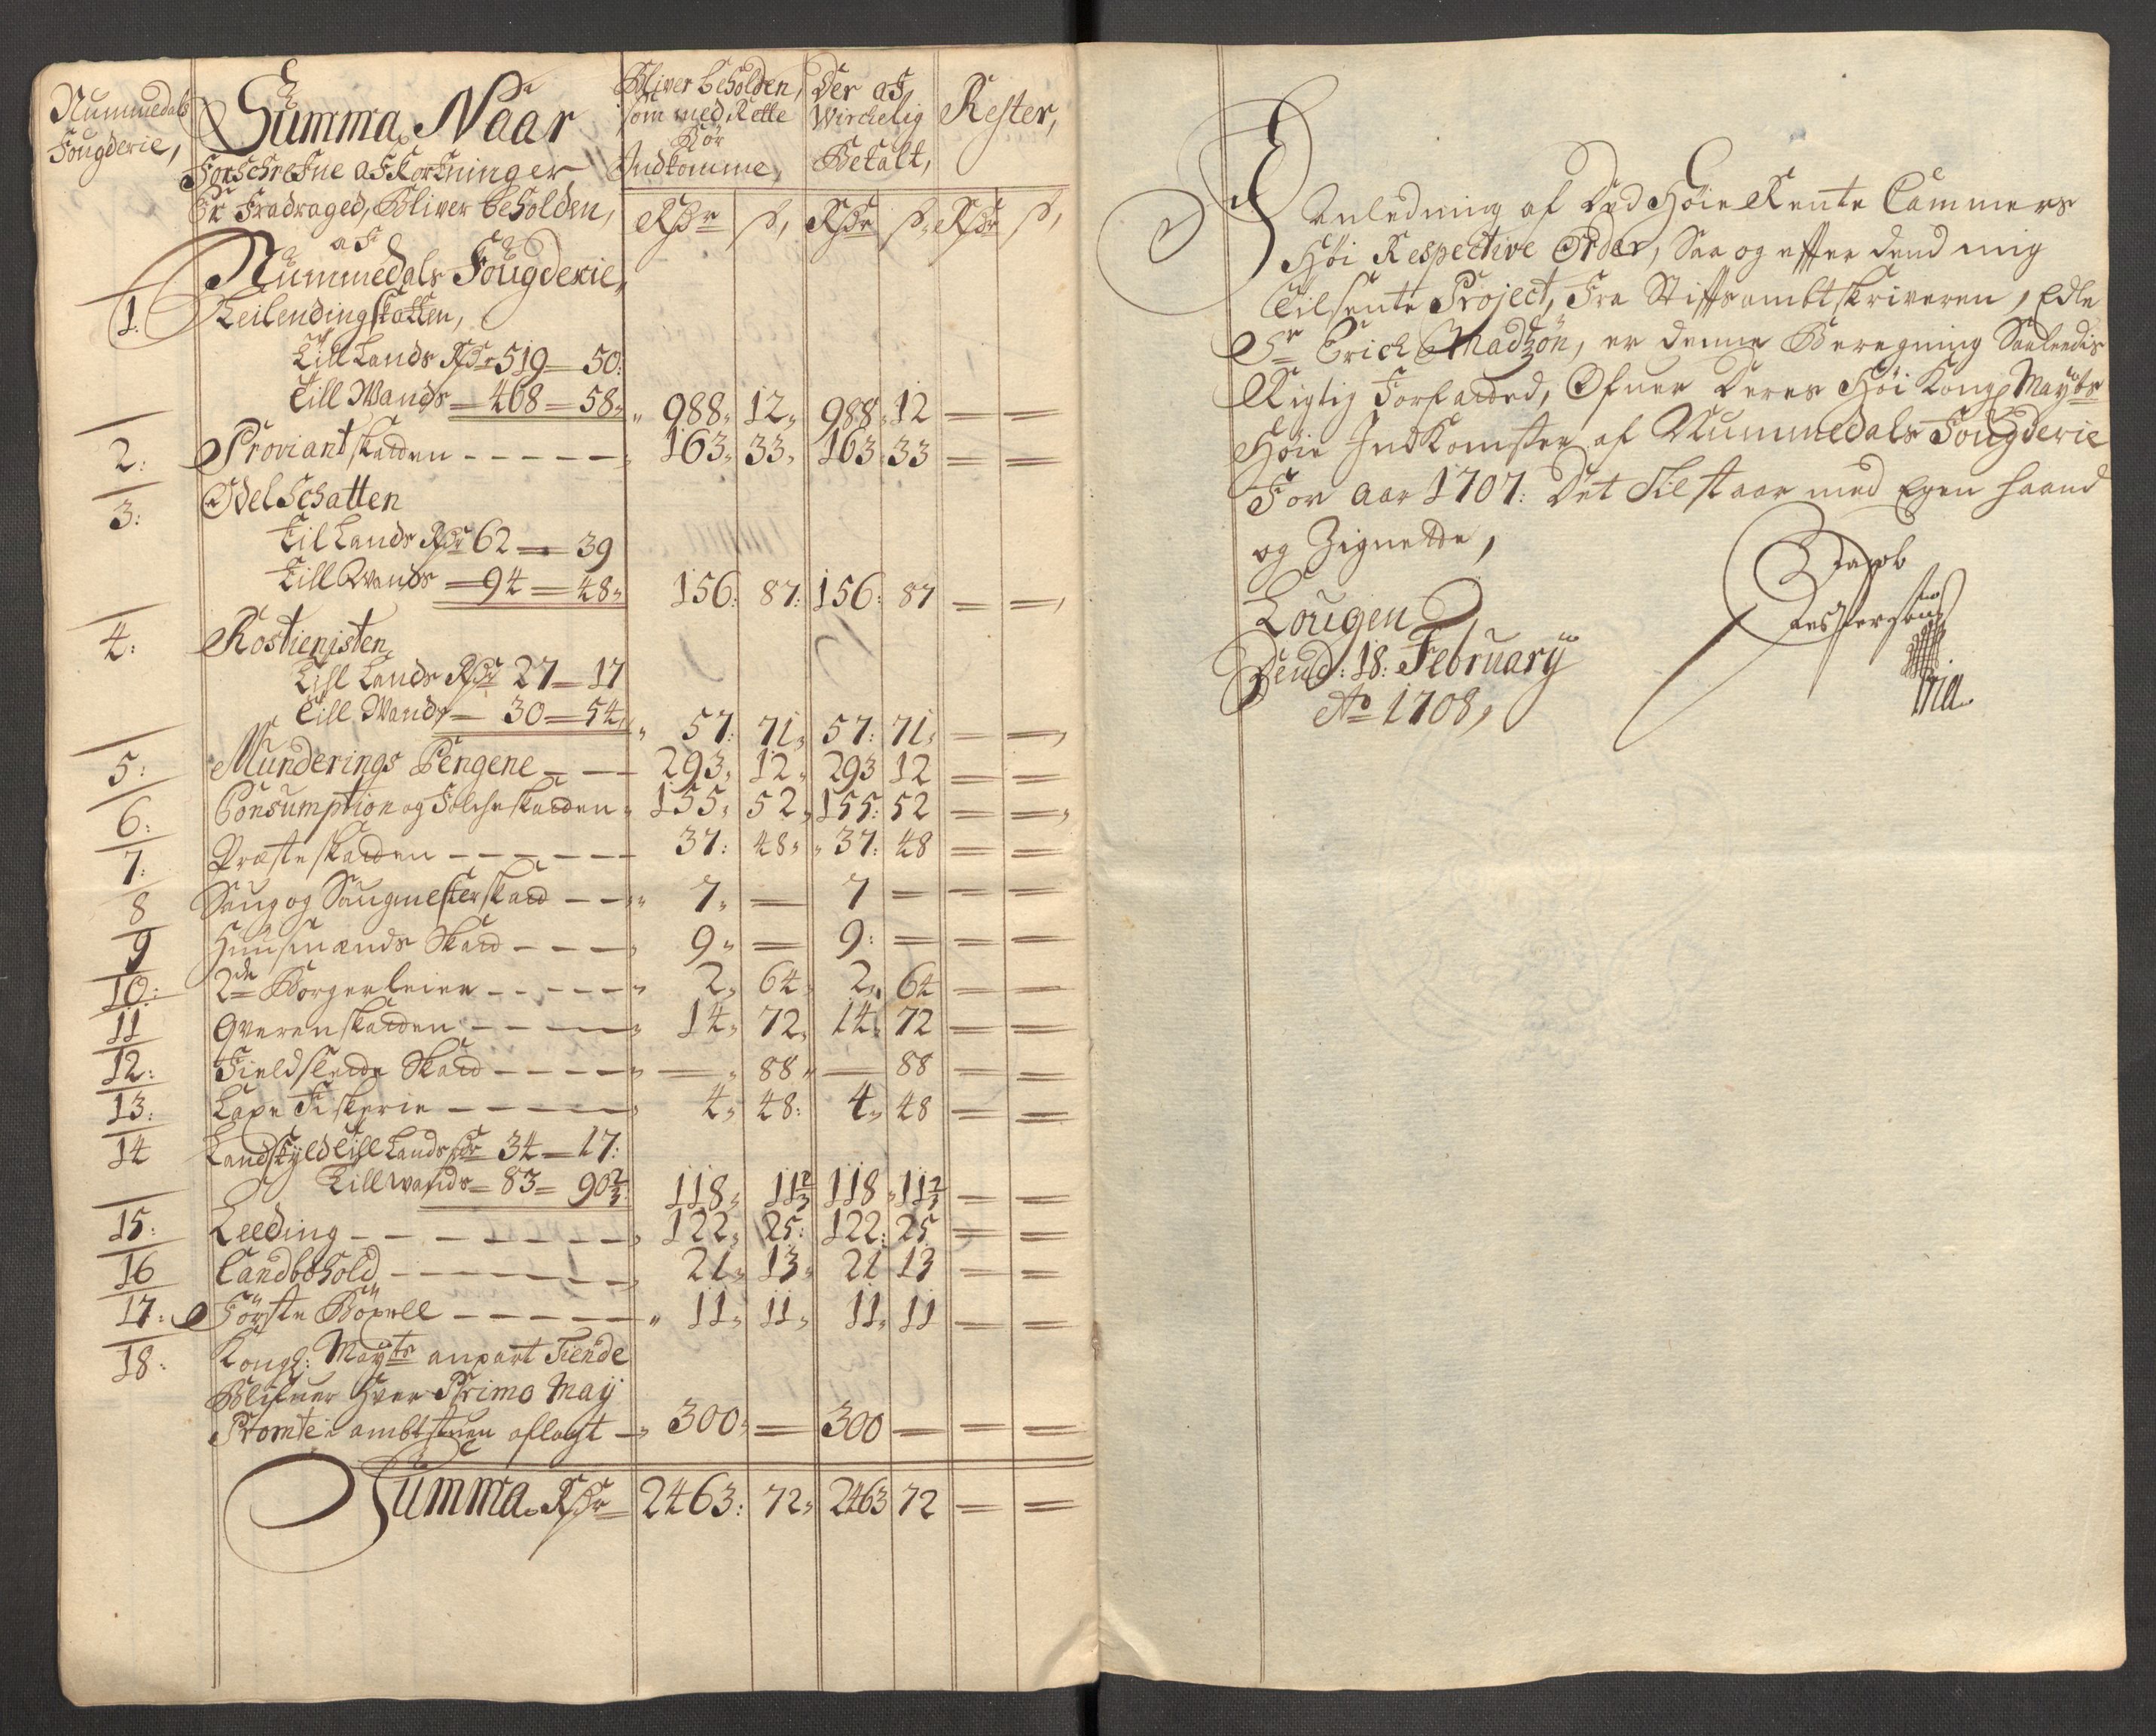 Nummedals
Fougderie,
Summa Naar
Forschrefne afKortninger
Er Fradraged, Bliver beholden,
af
Nummedals Fougderie,
Bliver beholden,
som med Rette
Bör
Indkomme,
Der af
Wirchelig
Betalt,
Rester,
Rdr ß, Rdr ß, Rdr ß,
1. Leilendingskatten,
Till Lands Rdr 519 — 50:
Till Wands — 468 — 58„ 988„ 12„ 988„ 12 — —
2: Proviantskatten - - - - - 163„ 33„ 163„ 33 — —
3: Odel Schatten
Til Lands Rdr 62 — 39
Till Wands — 94 — 48„ 156: 87: 156: 87 — —
4: Rostienisten,
Till Lands Rdr 27 — 17
Till Wands — 30 — 54„ 57: 71„ 57: 71„ — —
5: Munderings Pengene - — 293„ 12„ 293 12 — —
6: Consumption og Folcheskatten„ 155„ 52„ 155: 52 — —
7: Præsteskatten - - - - - - 37: 48„ 37: 48 — —
8 Saug og Saugmesterskatt - - - 7„ — 7 — — —
9 Huusmænds Skatt - - - - 9„ — 9: — — —
10: 2de Borgerleier - - - - - 2„ 64„ 2„ 64 — —
11 Qvernskatten - - - - 14„ 72„ 14„ 72 — —
12: Fieldslette Skatt - - - - - — „ 88„ — 88 — —
13: Laxe Fiskerie - - - - - 4„ 48: 4„ 48 — —
14 Landskyld Till Lands Rdr 34 — 17:
Till Wands — 83 — 90 2/3 118„ 11 2/3 118„ 11 2/3 — —
15: Leeding - - - - - - - 122„ 25: 122: 25 — —
16 Landbohold - - - - - - 21„ 13„ 21 13 — —
17: Förste Böxell - - - - - „ 11„ 11„ 11„ 11 — —
18: Kongl: Mayts anpart Tiende
Blifuer hver Primo May
Promte i ambtstuen aflagt — „ 300„ — 300 — — —
Summa Rdr 2463: 72„ 2463 72 — —
I Anledning af Ded Høie Rente Cammers
Høi Respective Order, Saa og effter dend mig
Tilsente Project, Fra Stifftsambtskriveren, Edle
Sr Erich Madzön, er denne Beregning Saaledis
Rigtig Forfatted, Ofuer Deres Høi Kongl Mayts
Høie IndKomster af Nummedals Fougderie
For Aar 1707: Det Tilstaar med Egen Haand
og Zignette,
Lougen
Dend: 18: February
Ao 1708,
Jacob
Jesperson
mia